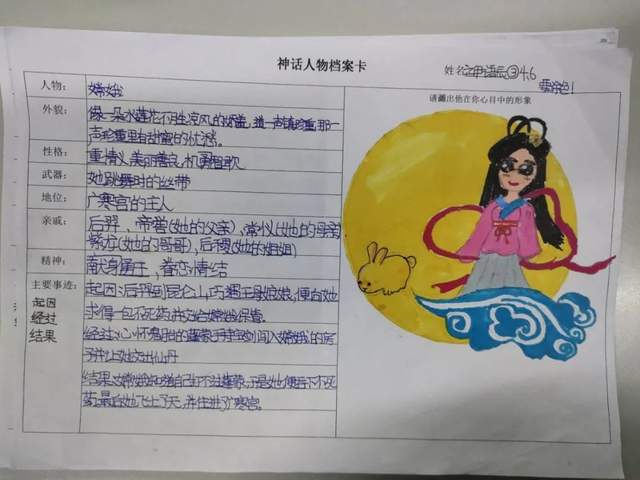 神话人物档案卡
姓名
③46
要给色!
人物:
嫦娥
请画出他在你心目中的形象
外貌:
像一朵水莲花不胜凉风的娇羞,道一声珍重,那一
声珍重里有甜蜜的忧愁。
性格:
重情义 美丽善良 机勇
武器:
她跳舞时的丝带
地位:
广寒宫的主人
亲戚:
后羿、帝喾(她的父亲)、常仪(她的母亲)
(她的哥哥)、后稷(她的
精神:
献身 眷恋情结
主要事迹:
起因
经过
结果
起因:后羿到昆仑山巧遇王母娘娘,便向她
求得一包不死药,并交给嫦娥保管。
经过:心怀鬼胎的蓬蒙手持宝剑闯入嫦娥的房
子并让她交出仙丹
结果:嫦娥知道自己打不过蓬蒙,于是她便吞下不死
药,最后她飞上了天,并住进了广寒宫。